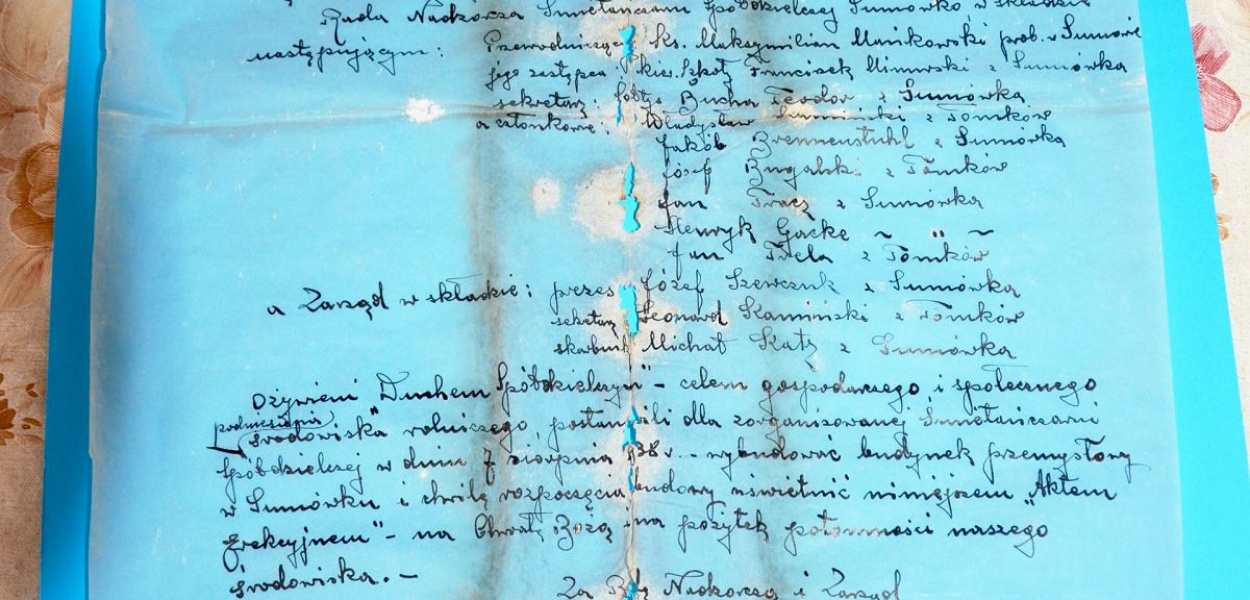 Rada Nadzorcza Śmietańczarni Spółdzielczej Sumówko w składzie
następującym: Przewodniczący ks. Maksymilian Mańkowski prob. z Sumowa
jego zastępca: kier. Szkoły Franciszek z Sumówka
sekretarz: sołtys Bucha Teodor z Sumówka
a członkowie: Władysław z Tomków
Jakób Brennenstuhl z Sumówka
Józef Rugalski z Tomków
Jan Tracz z Sumówka
Henryk Gacke ~ " ~
Jan Trela z Tomków
a Zarząd w składzie: prezes Józef Szewczuk z Sumówka
sekretarz Leonard Kamiński z Tomków
skarbnik Michał Katz z Sumówka
Ożywieni "Duchem Spółdzielczym" - celem gospodarczego i społecznego
podniesienia
środowiska rolniczego, postanowili dla zorganizowanej Śmietańczarni
Spółdzielczej w dniu 7 sierpnia 38 r. - wybudować budynek przemysłowy
w Sumówku i chwilę rozpoczęcia budowy uświetnić niniejszem "Aktem
Erekcyjnem" - na Chwałę Bożą i na pożytek potomności naszego
środowiska. -
Za Radę Nadzorczą i Zarząd